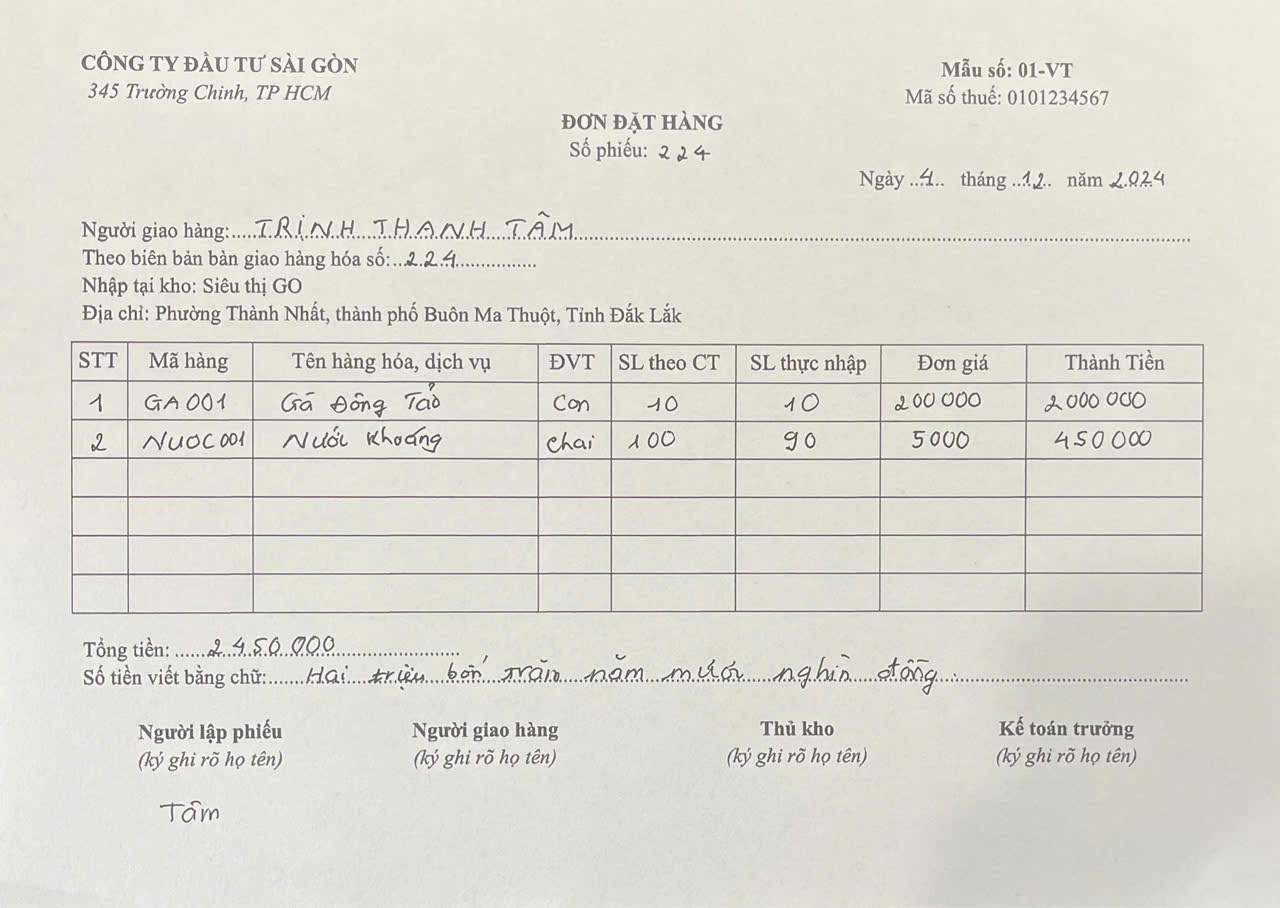 CÔNG TY ĐẦU TƯ SÀI GÒN
345 Trường Chinh, TP HCM
Mẫu số: 01-VT
Mã số thuế: 0101234567
ĐƠN ĐẶT HÀNG
Số phiếu: 224
Ngày ..4.. tháng ..12.. năm 2024
Người giao hàng: TRỊNH THANH TÂM
Theo biên bản bàn giao hàng hóa số: 224
Nhập tại kho: Siêu thị GO
Địa chỉ: Phường Thành Nhất, thành phố Buôn Ma Thuột, Tỉnh Đắk Lắk
STT Mã hàng Tên hàng hóa, dịch vụ ĐVT SL theo CT SL thực nhập Đơn giá Thành Tiền
1 GA001 Gà Đông Tảo Con 10 10 200 000 2 000 000
2 NUOC001 Nước khoáng chai 100 90 5000 450 000
Tổng tiền: 2.450.000
Số tiền viết bằng chữ: Hai triệu bốn trăn năm mươi nghìn đồng.
Người lập phiếu Người giao hàng Thủ kho Kế toán trưởng
(ký ghi rõ họ tên) (ký ghi rõ họ tên) (ký ghi rõ họ tên) (ký ghi rõ họ tên)
Tâm